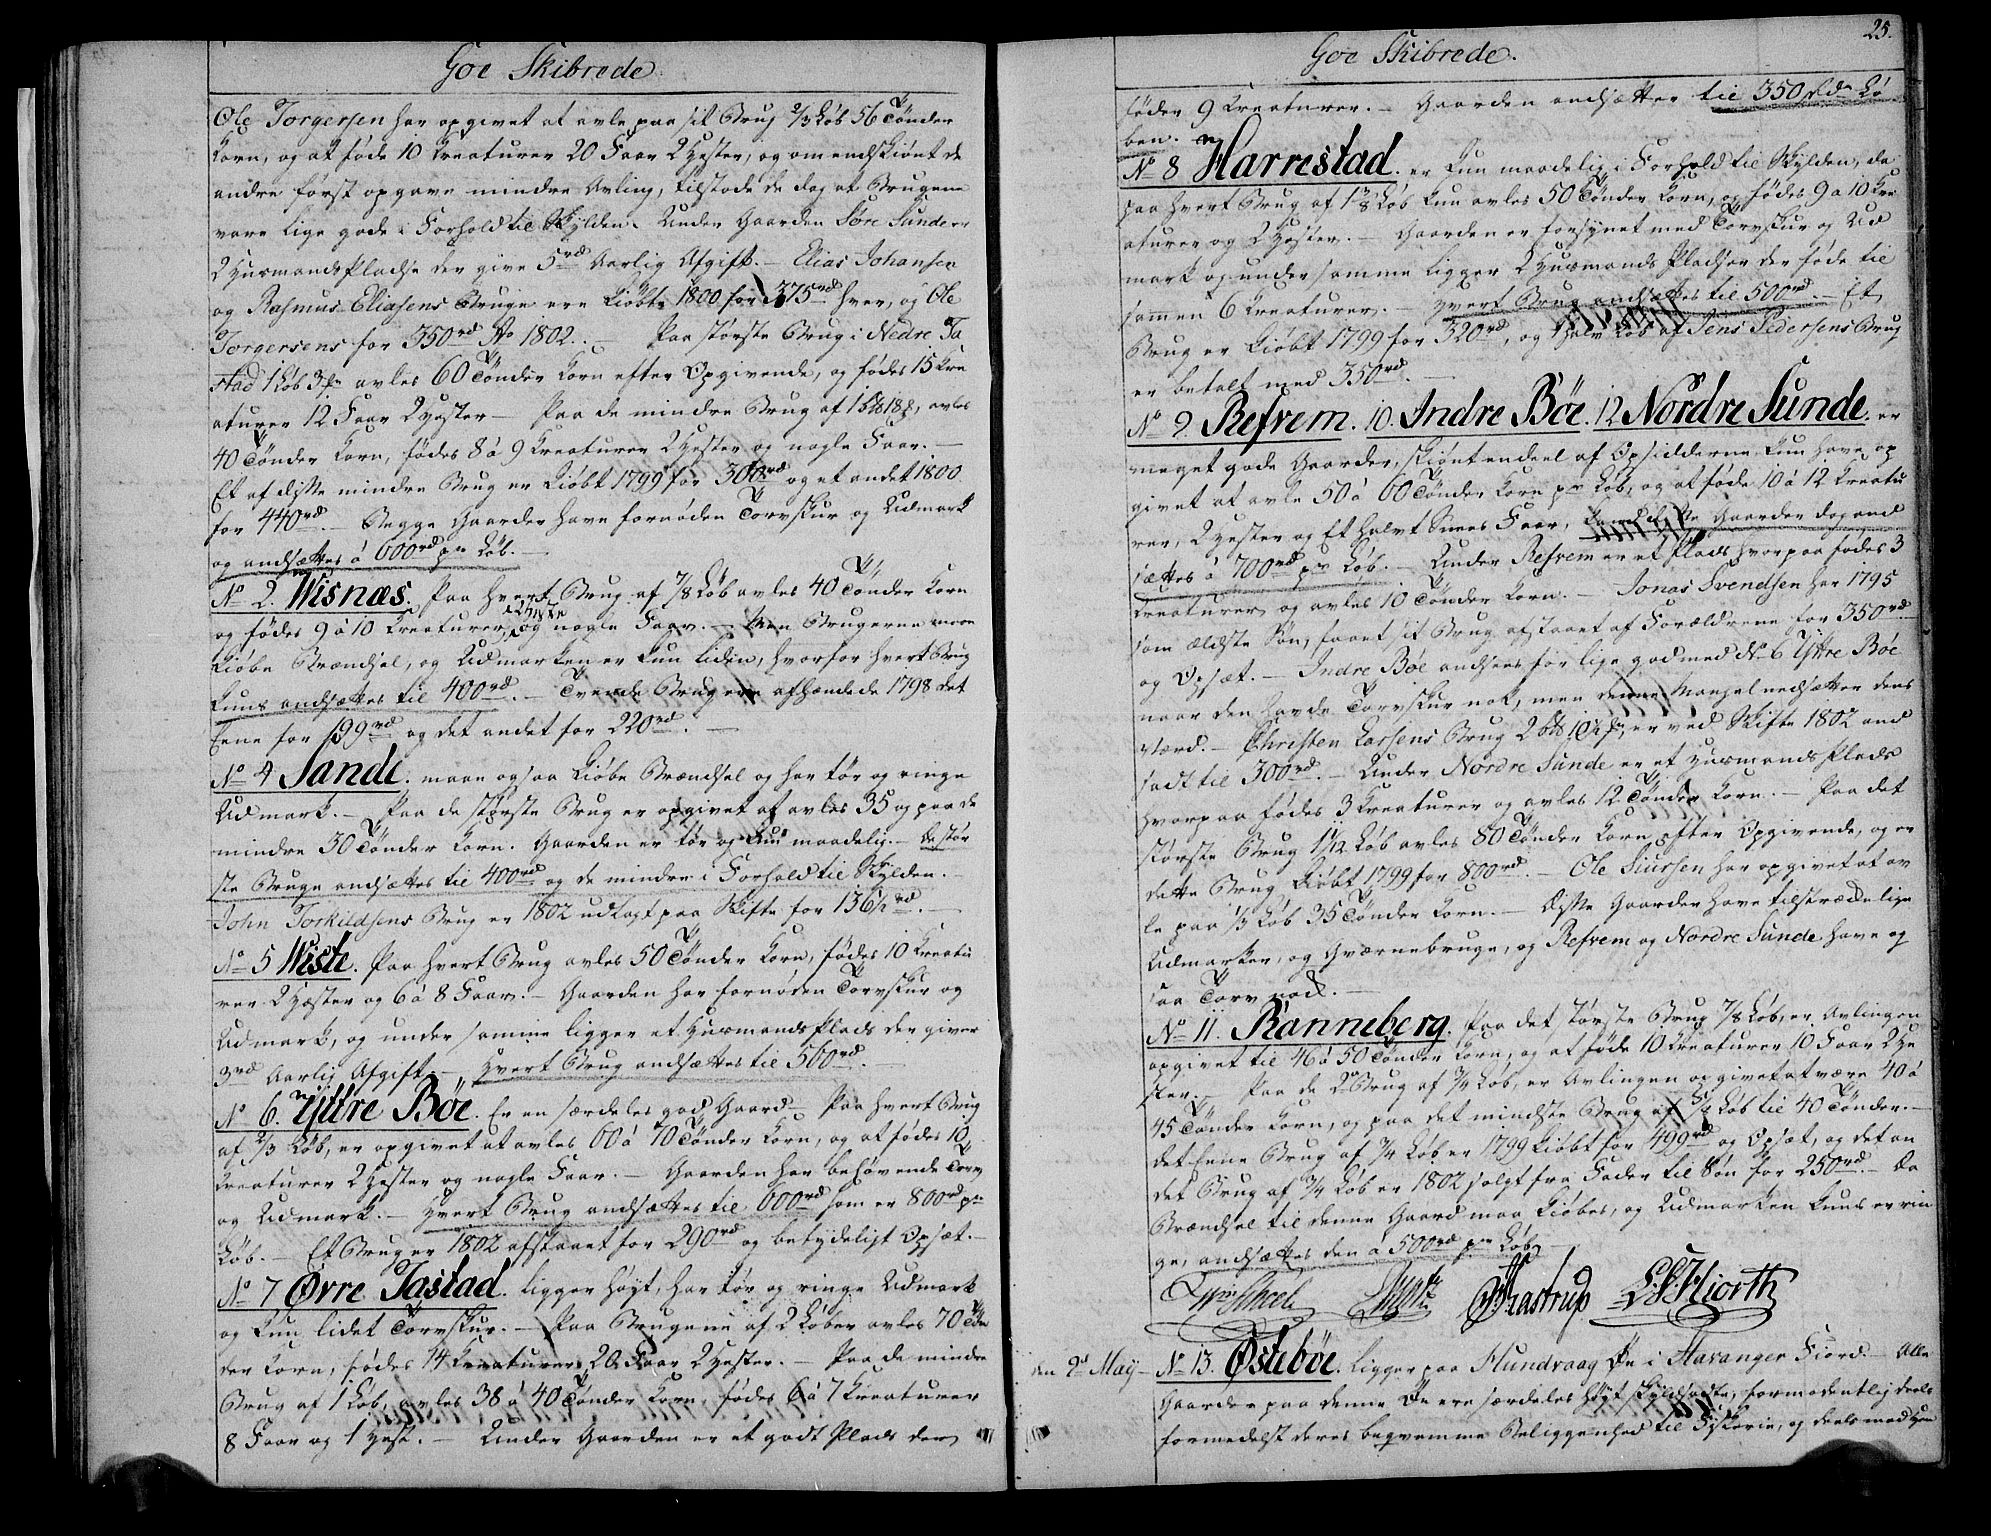 Goe Skibrede
Ole Torgersen har opgivet at avle paa sit Brug 2/3 Løb 56 Tønder
Korn, og at føde 10 Kreaturer 20 Faar 2 Hester, og omendskiønt de
andre først opgave mindre Avling, tilstode de dog at Brugene
vare lige gode i Forhold til Skylden. Under Gaarden Søre Sunde er
2 Husmands Pladse der give 5rd Aarlig Afgift. — Elias Johansen
og Rasmus Eliasens Bruge ere kiøbte 1800 for 375rd hver, og Ole
Torgersens for 350rd Ao 1802. — Paa største Brug i Nedre Ta
stad 1 Løb 3 avles 60 Tønder Korn efter Opgivende, og fødes 15 Kre
aturer 12 Faar 2 Hester — Paa de mindre Brug af 1 18 , avles
40 Tønder Korn, fødes 8 à 9 Kreaturer 2 Hester og nogle Faar. —
Et af disse mindre Brug er kiøbt 1799 for 300rd og et andet 1800
for 440rd. — Begge Gaarder have fornøden Torvskur og Udmark
og andsættes à 600rd pr Løb. —
No 2. Wisnæs. Paa hvert Brug af 7/8 Løb avles 40 Tønder Korn
og fødes 9 à 10 Kreaturer, 2 Heste og nogle Faar. — Men Brugerne maae
kiøbe Brændsel, og Udmarken er kun liden, hvorfor hvert Brug
kuns andsættes til 400rd. — Tvende Brug ere afhændede 1798 det
Eene for 199rd og det andet for 220rd. —
No 4 Sande. maae ogsaa kiøbe Brændsel og har tør og ringe
Udmark. — Paa de største Brug er opgivet at avles 35 og paa de
mindre 30 Tønder Korn. Gaarden er tør og kun maadelig. — De stør
ste Bruge andsættes til 400rd og de mindre i Forhold til Skylden.
John Torkildsens Brug er 1802 udlagt paa Skifte for 136 1/2 rd. —
No 5 Wiste. Paa hvert Brug avles 50 Tønder Korn, fødes 10 Kreatu
rer 2 Hester og 6 à 8 Faar. — Gaarden har fornøden Torvskur og
Udmark, og under samme ligger et Husmands Plads der giver
3rd Aarlig Afgift. — Hvert Brug andsættes til 500rd. —
No 6. Yttre Böe. Er en særdeles god Gaard — Paa hvert Brug
af 2/3 Løb, er opgivet at avles 60 à 70 Tønder Korn, og at fødes 10
Kreaturer 2 Hester og nogle Faar. — Gaarden har behøvende Torv
og Udmark. — Hvert Brug andsættes til 600rd som er 800rd pr
Løb. — Et Brug er 1802 afstaaet for 290rd og betydeligt Opsæt. —
No 7 Øvre Tastad. ligger høyt, har tør og ringe Udmark
og kun lidet Torvskur. — Paa Brugene af 2 Løber avles 70 Tøn
der Korn, fødes 14 Kreaturer, 20 Faar 2 Hester. — Paa de mindre
Brug af 1 Løb, avles 38 à 40 Tønder Korn, fødes 6 à 7 Kreaturer
8 Faar og 1 Hest. — Under Gaarden er et godt Plads der
25.
Goe Skibrede.
føder 9 Kreaturer. — Gaarden andsættes til 350 rd Lø
ben.
No 8 Harrestad. er kun maadelig i Forhold til Skylden, da
paa hvert Brug af 1 Løb kun avles 50 Tønder Korn, og fødes 9 à 10 Kre
aturer og 2 Hester. — Gaarden er forsynet med Torvskur og Ud
mark og under samme ligger 2 Husmands Pladser der føde til
samen 6 Kreaturer. — Hvert Brug andsættes til 500rd. — Et
Brug er kiøbt 1799 for 320rd, og Løb af Jens Pedersens Brug
er betalt med 350rd.
No 9. Refvem. 10. Indre Böe. 12 Nordre Sunde. er
meget gode Gaarder, skiønt endeel af Opsidderne kun have op
givet at avle 50 à 60 Tønder Korn pr Løb, og at føde 10 à 12 Kreatu
rer, 2 Hester og Et halvt Snees Faar, Gaarder dog and
sættes à 700rd pr Løb. — Under Refvem er et Plads hvorpaa fødes 3
Kreaturer og avles 10 Tønder Korn. — Jonas Svendsen har 1795
som ældste Søn, faaet sit Brug afstaaet af Forældrene for 350rd
og Opsæt. — Indre Böe andsees for lige god med No 6 Yttre Böe
naar den havde Torvskur nok, men denne Mangel nedsætter dens
værd. — Christen Larsens Brug 2 10 , er ved Skifte 1802 and
sadt til 300rd. — Under Nordre Sunde er et Husmands Plads
hvorpaa fødes 3 Kreaturer og avles 12 Tønder Korn. — Paa det
største Brug 1 1/12 Løb avles 80 Tønder Korn efter Opgivende, og er
dette Brug kiøbt 1799 for 800rd. — Ole Siursen har opgivet at av
le paa 1/3 Løb 35 Tønder Korn. — Disse Gaarder have tilstrækkelige
Udmarker, og Qværnebruge, og Refvem og Nordre Sunde have og
saa Torv nok. —
No 11. Ranneberg. Paa det største Brug 7/8 Løb, er Avlingen
opgivet til 46 à 50 Tønder Korn, og at føde 10 Kreaturer 10 Faar 2 He
ster. — Paa de 2de Brug af 3/4 Løb, er Avlingen opgivet at være 40 à
45 Tønder Korn, og paa det mindste Brug af Løb til 40 Tønder. —
det Eene Brug af 3/4 Løb er 1799 kiøbt for 499rd og Opsæt, og det an
det Brug af 3/4 Løb er 1802 solgt fra Fader til Søn for 250rd. — Da
Brændsel til denne Gaard maa kiøbes, og Udmarken kuns er rin
ge, andsættes den à 500rd pr Løb. —
Scheel Rastrup Hiorth
den 2de Maÿ — No 13. Østebøe. ligger paa Hundvaag Øe i Stavanger Fiord. — Alle
Gaarder paa denne Øe ere særdeles høyt Skyldsadte, formodentlig deels
formedelst deres beqvemme Beliggenhed til Fiskerie, og deels med Hen